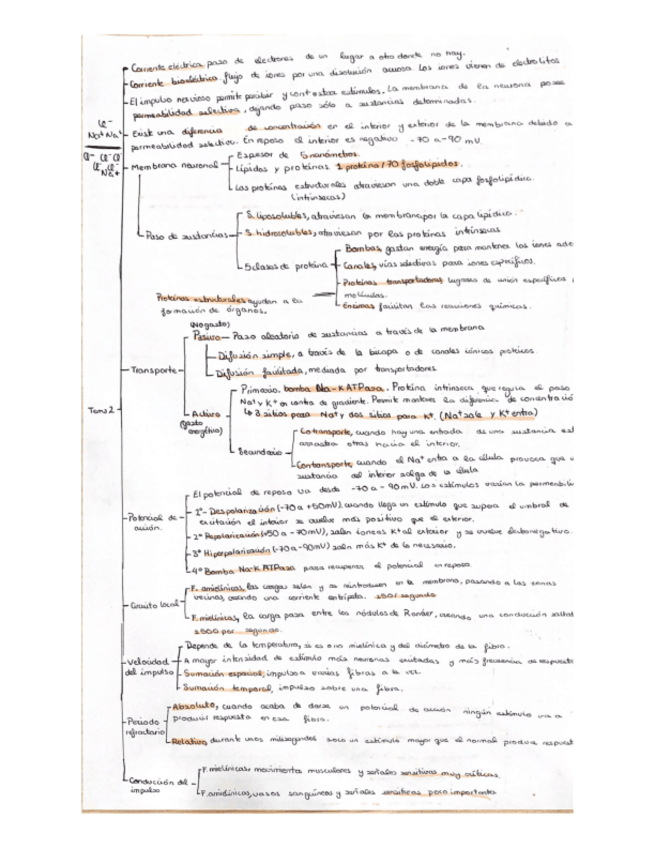 Corriente eléctrica, paso de electrones de un lugar a otro donde no hay.
Corriente bioeléctrica, flujo de iones por una disolución acuosa. Los iones vienen de electrolitos
El impulso nervioso permite percibir y contestar estímulos. La membrana de la neurona posee
permeabilidad selectiva, dejando paso sólo a sustancias determinadas.
Cl-
Na+ Na+
Existe una diferencia de concentración en el interior y exterior de la membrana debido a
permeabilidad selectiva. En reposo el interior es negativo -70 a -90 mV.
Cl- Cl- Cl-
Cl- Cl-
Na+
Membrana neuronal
Espesor de 5 nanómetros.
Lípidos y proteínas. 1 proteína / 70 fosfolípidos.
Las proteínas estructurales atraviesan una doble capa fosfolipídica.
(intrínsecas)
Paso de sustancias
S. liposolubles, atraviesan la membrana por la capa lipídica.
S. hidrosolubles, atraviesan por las proteínas intrínsecas
5 clases de proteína
Bombas, gastan energía para mantener los iones ade
Canales, vías selectivas para iones específicos.
Proteínas transportadoras, lugares de unión específicos
moléculas.
Enzimas facilitan las reacciones químicas.
Proteínas estructurales ayudan a la
formación de órganos.
Tema 2
Transporte
(No gasto)
Pasivo - Paso aleatorio de sustancias a través de la membrana
Difusión simple, a través de la bicapa o de canales iónicos proteicos.
Difusión facilitada, mediada por transportadores
Activo
(gasto
energético)
Primario. bomba Na-K ATPasa. Proteína intrínseca que regula el paso
Na+ y K+ en contra de gradiente. Permite mantener la diferencia de concentració
↳ 3 sitios para Na+ y dos sitios para K+. (Na+ sale y K+ entra)
Secundario
Cotransporte, cuando hay una entrada de una sustancia est
arrastra otras hacia el interior.
Contransporte, cuando el Na+ entra a la célula provoca que u
sustancia del interior salga de la célula
Potencial de
acción.
El potencial de reposo va desde -70 a -90mV. Los estímulos varían la permeabili
1º- Despolarización (-70 a +50mV), cuando llega un estímulo que supera el umbral de
excitación el interior se vuelve más positivo que el exterior.
2º Repolarización (+50 a -70mV), salen iones K+ al exterior y se vuelve electronegativo.
3º Hiperpolarización (-70 a -90mV) salen más K+ de lo necesario.
4º Bomba Na-K ATPasa para recuperar el potencial en reposo.
Circuito local
F. amielínicas, las cargas salen y se reintroducen en la membrana, pasando a las zonas
vecinas, creando una corriente antrípeta.
F. mielínicas, la carga pasa entre los nódulos de Ranvier, creando una conducción saltat
2500 por segundo.
Velocidad
del impulso
Depende de la temperatura, si es o no mielínica y del diámetro de la fibra.
A mayor intensidad de estímulo más neuronas excitadas y más frecuencia de respuesta
Sumación espacial, impulso a varias fibras a la vez.
Sumación temporal, impulso sobre una fibra.
Periodo
refractario
Absoluto, cuando acaba de darse un potencial de acción ningún estímulo va a
producir respuesta en esa fibra.
Relativo, durante unos milisegundos solo un estímulo mayor que el normal produce respuest
Conducción del
impulso
F. mielínicas, movimientos musculares y señales sensitivas muy críticas.
F. amielínicas, vasos sanguíneos y señales sensitivas poco importantes